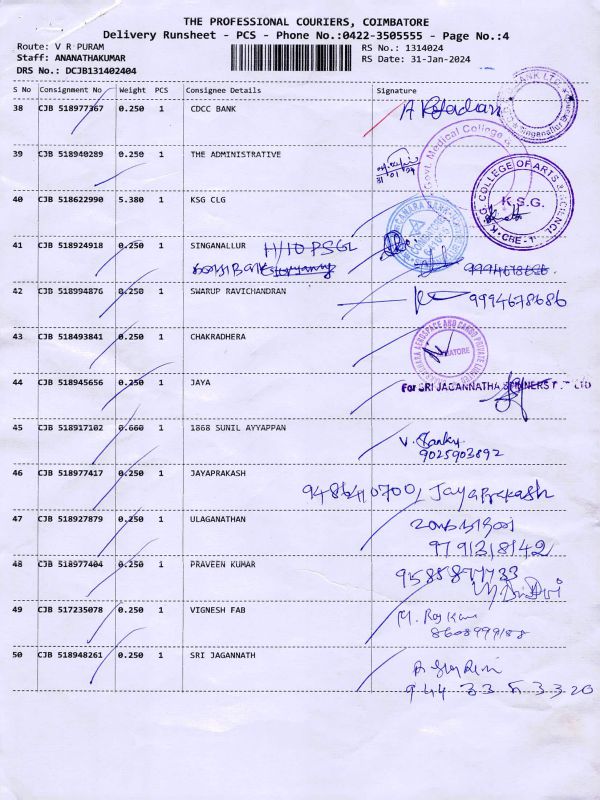 THE PROFESSIONAL COURIERS, COIMBATORE
Delivery Runsheet - PCS - Phone No.:0422-3505555 - Page No.:4
Route: V R PURAM
RS No.: 1314024
Staff: ANANATHAKUMAR
RS Date: 31-Jan-2024
DRS No.: DCJB131402404
S No Consignment No Weight PCS Consignee Details Signature
38 CJB 518977367 0.250 1 CDCC BANK
BANK LTD
39 CJB 518940289 0.250 1 THE ADMINISTRATIVE
Govt. Medical College &
31/01/24
40 CJB 518622990 5.380 1 KSG CLG
COLLEGE OF ARTS & SCIENCE
K.S.G.
41 CJB 518924918 0.250 1 SINGANALLUR H/10 PSGL
9994678686
42 CJB 518994876 0.250 1 SWARUP RAVICHANDRAN 9994678686
43 CJB 518493841 0.250 1 CHAKRADHERA
44 CJB 518945656 0.250 1 JAYA
For SRI JAGANNATHA SPINNERS P LTD
45 CJB 518917102 0.660 1 1868 SUNIL AYYAPPAN
9025903892
46 CJB 518977417 0.250 1 JAYAPRAKASH
Jayaprakash
47 CJB 518927879 0.250 1 ULAGANATHAN
9791318142
48 CJB 518977404 0.250 1 PRAVEEN KUMAR
49 CJB 517235078 0.250 1 VIGNESH FAB
50 CJB 518948261 0.250 1 SRI JAGANNATH